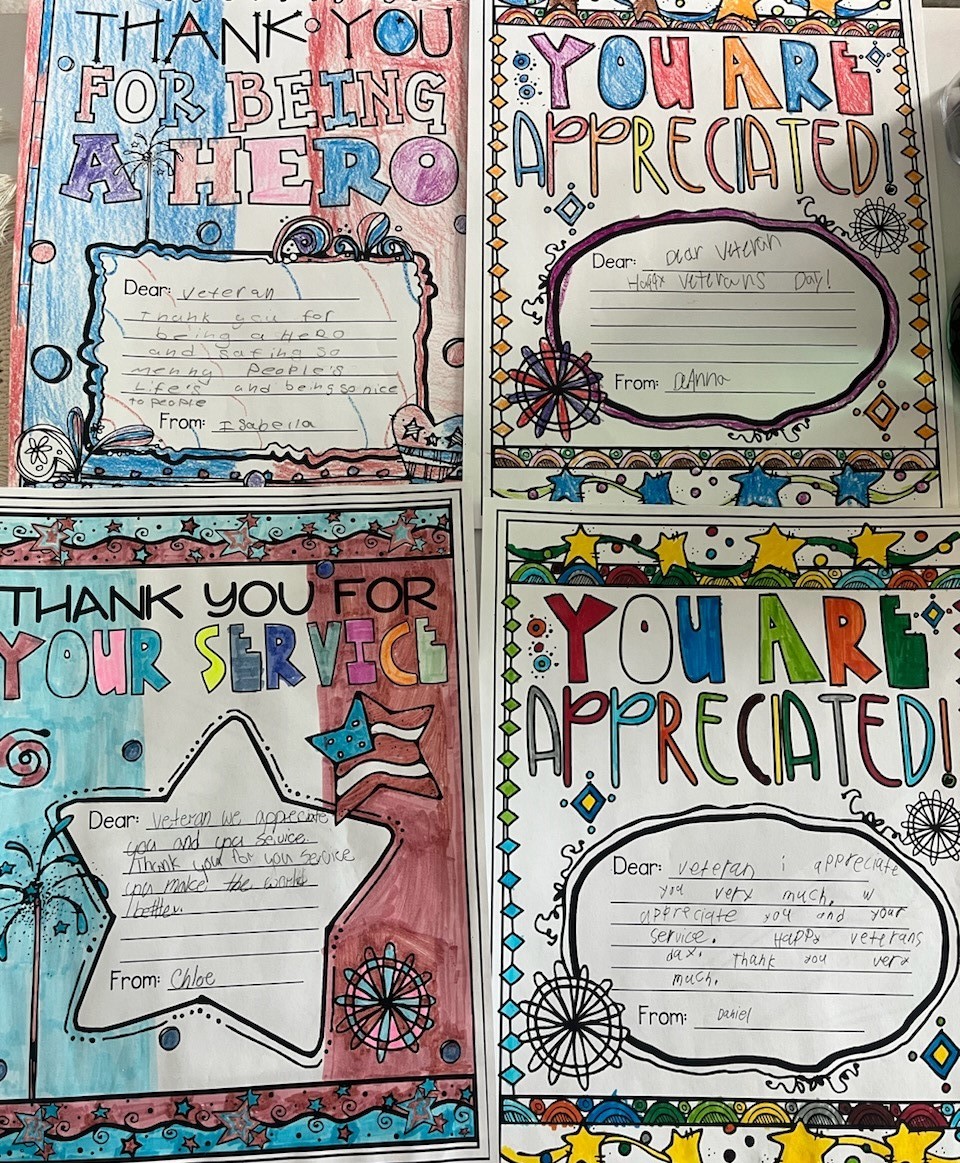 THANK YOU
FOR BEING
A HERO
Dear: Veteran
Thank you for
being a HeRO
and safing so
menny People's
Life's and being so nice
to people
From: Isabella
YOU ARE
APPRECIATED!
Dear: Dear Veteran
Happy Veterans Day!
From: deAnna
THANK YOU FOR
YOUR SERVICE
Dear: Veteran we appreciate
you and you service.
Thank your for you service
you make the world
better.
From: Chloe
YOU ARE
APPRECIATED!
Dear: Veteran i appreciate
you very much. w
appreciate you and your
service. Happy veterans
day. thank you very
much.
From: Daniel